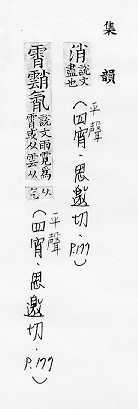 集韻
消 說文盡也 平聲（四宵．思邀切．P.177）
霄 說文雨霓為霄或从雲从气 平聲（四宵．思邀切．P.177）